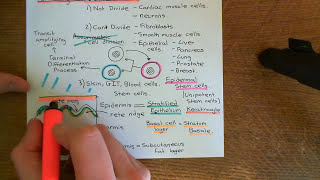 1) Not Divide - Cardiac muscle cells.
- neurons
2) Can't Divide - Fibroblasts
- Smooth muscle cells
Transit amplifying cell
Assymmetric cell division
- Epithelial cells
- Liver
- Pancreas
- Lung
- Prostate
- Breast.
Terminal Differentiation Process
3) Skin, GIT, Blood cells.
Stem cells.
Epidermal Stem cells
(Unipotent Stem cells)
Epidermis = Stratified Epithelium
Keratinocyte
rete ridge
Basal cell layer = Stratum Basale.
= Subcutaneous fat layer